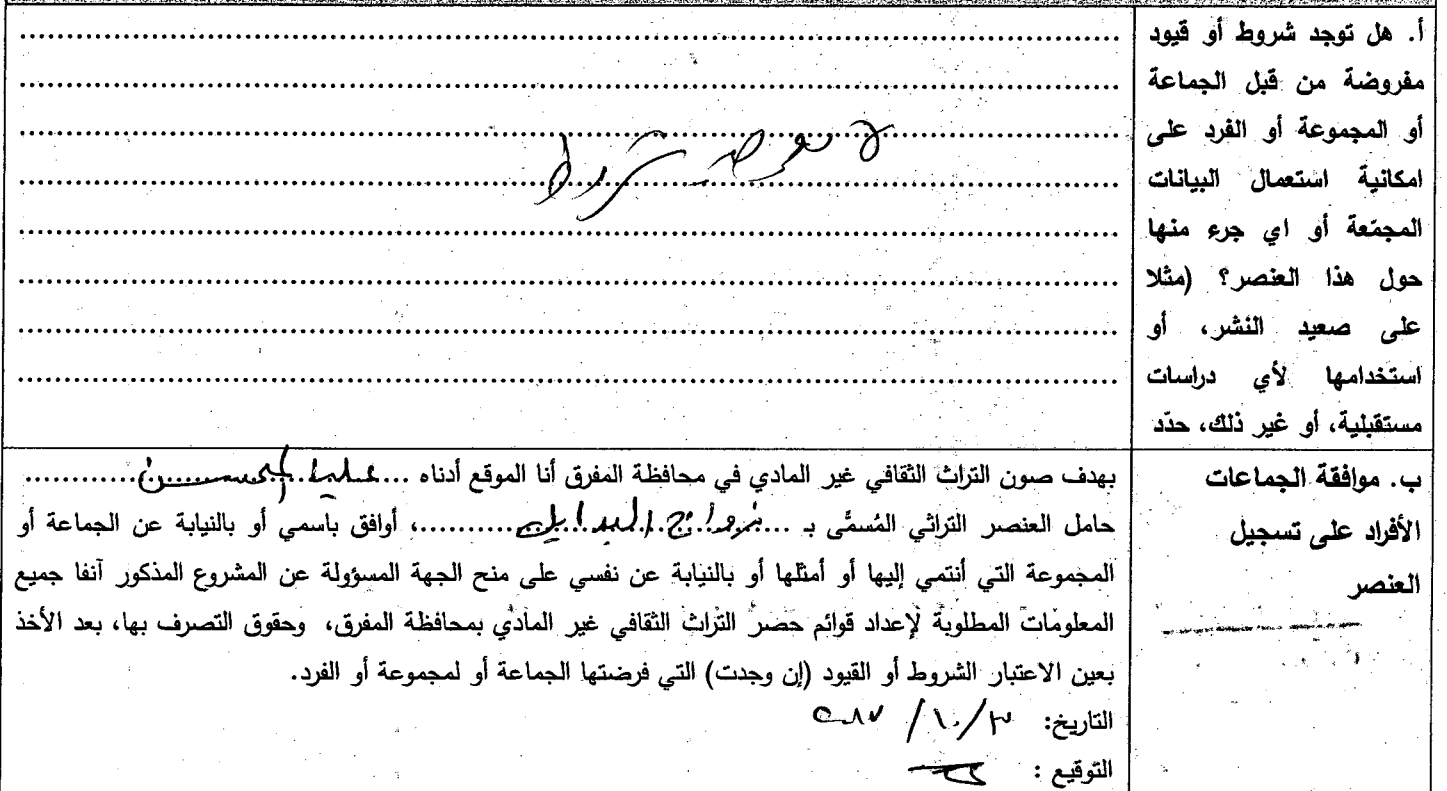 أ. هل توجد شروط أو قيود
مفروضة من قبل الجماعة
أو المجموعة أو الفرد على
امكانية استعمال البيانات
المجمّعة أو اي جرء منها
حول هذا العنصر؟ (مثلا
على صعيد النشر، أو
استخدامها لأي دراسات
مستقبلية، أو غير ذلك، حدّد
شروط
ب. موافقة الجماعات
الأفراد على تسجيل
العنصر
بهدف صون التراث الثقافي غير المادي في محافظة المفرق أنا الموقع أدناه ...
حامل العنصر التراثي المُسمَّى بـ ... زواج البدايل ...، أوافق باسمي أو بالنيابة عن الجماعة أو
المجموعة التي أنتمي إليها أو أمثلها أو بالنيابة عن نفسي على منح الجهة المسؤولة عن المشروع المذكور آنفا جميع
المعلومات المطلوبة لإعداد قوائم حصر التراث الثقافي غير المادي بمحافظة المفرق، وحقوق التصرف بها، بعد الأخذ
بعين الاعتبار الشروط أو القيود (إن وجدت) التي فرضتها الجماعة أو لمجموعة أو الفرد.
التاريخ: ٣/١٠/٢٠١٧
التوقيع :